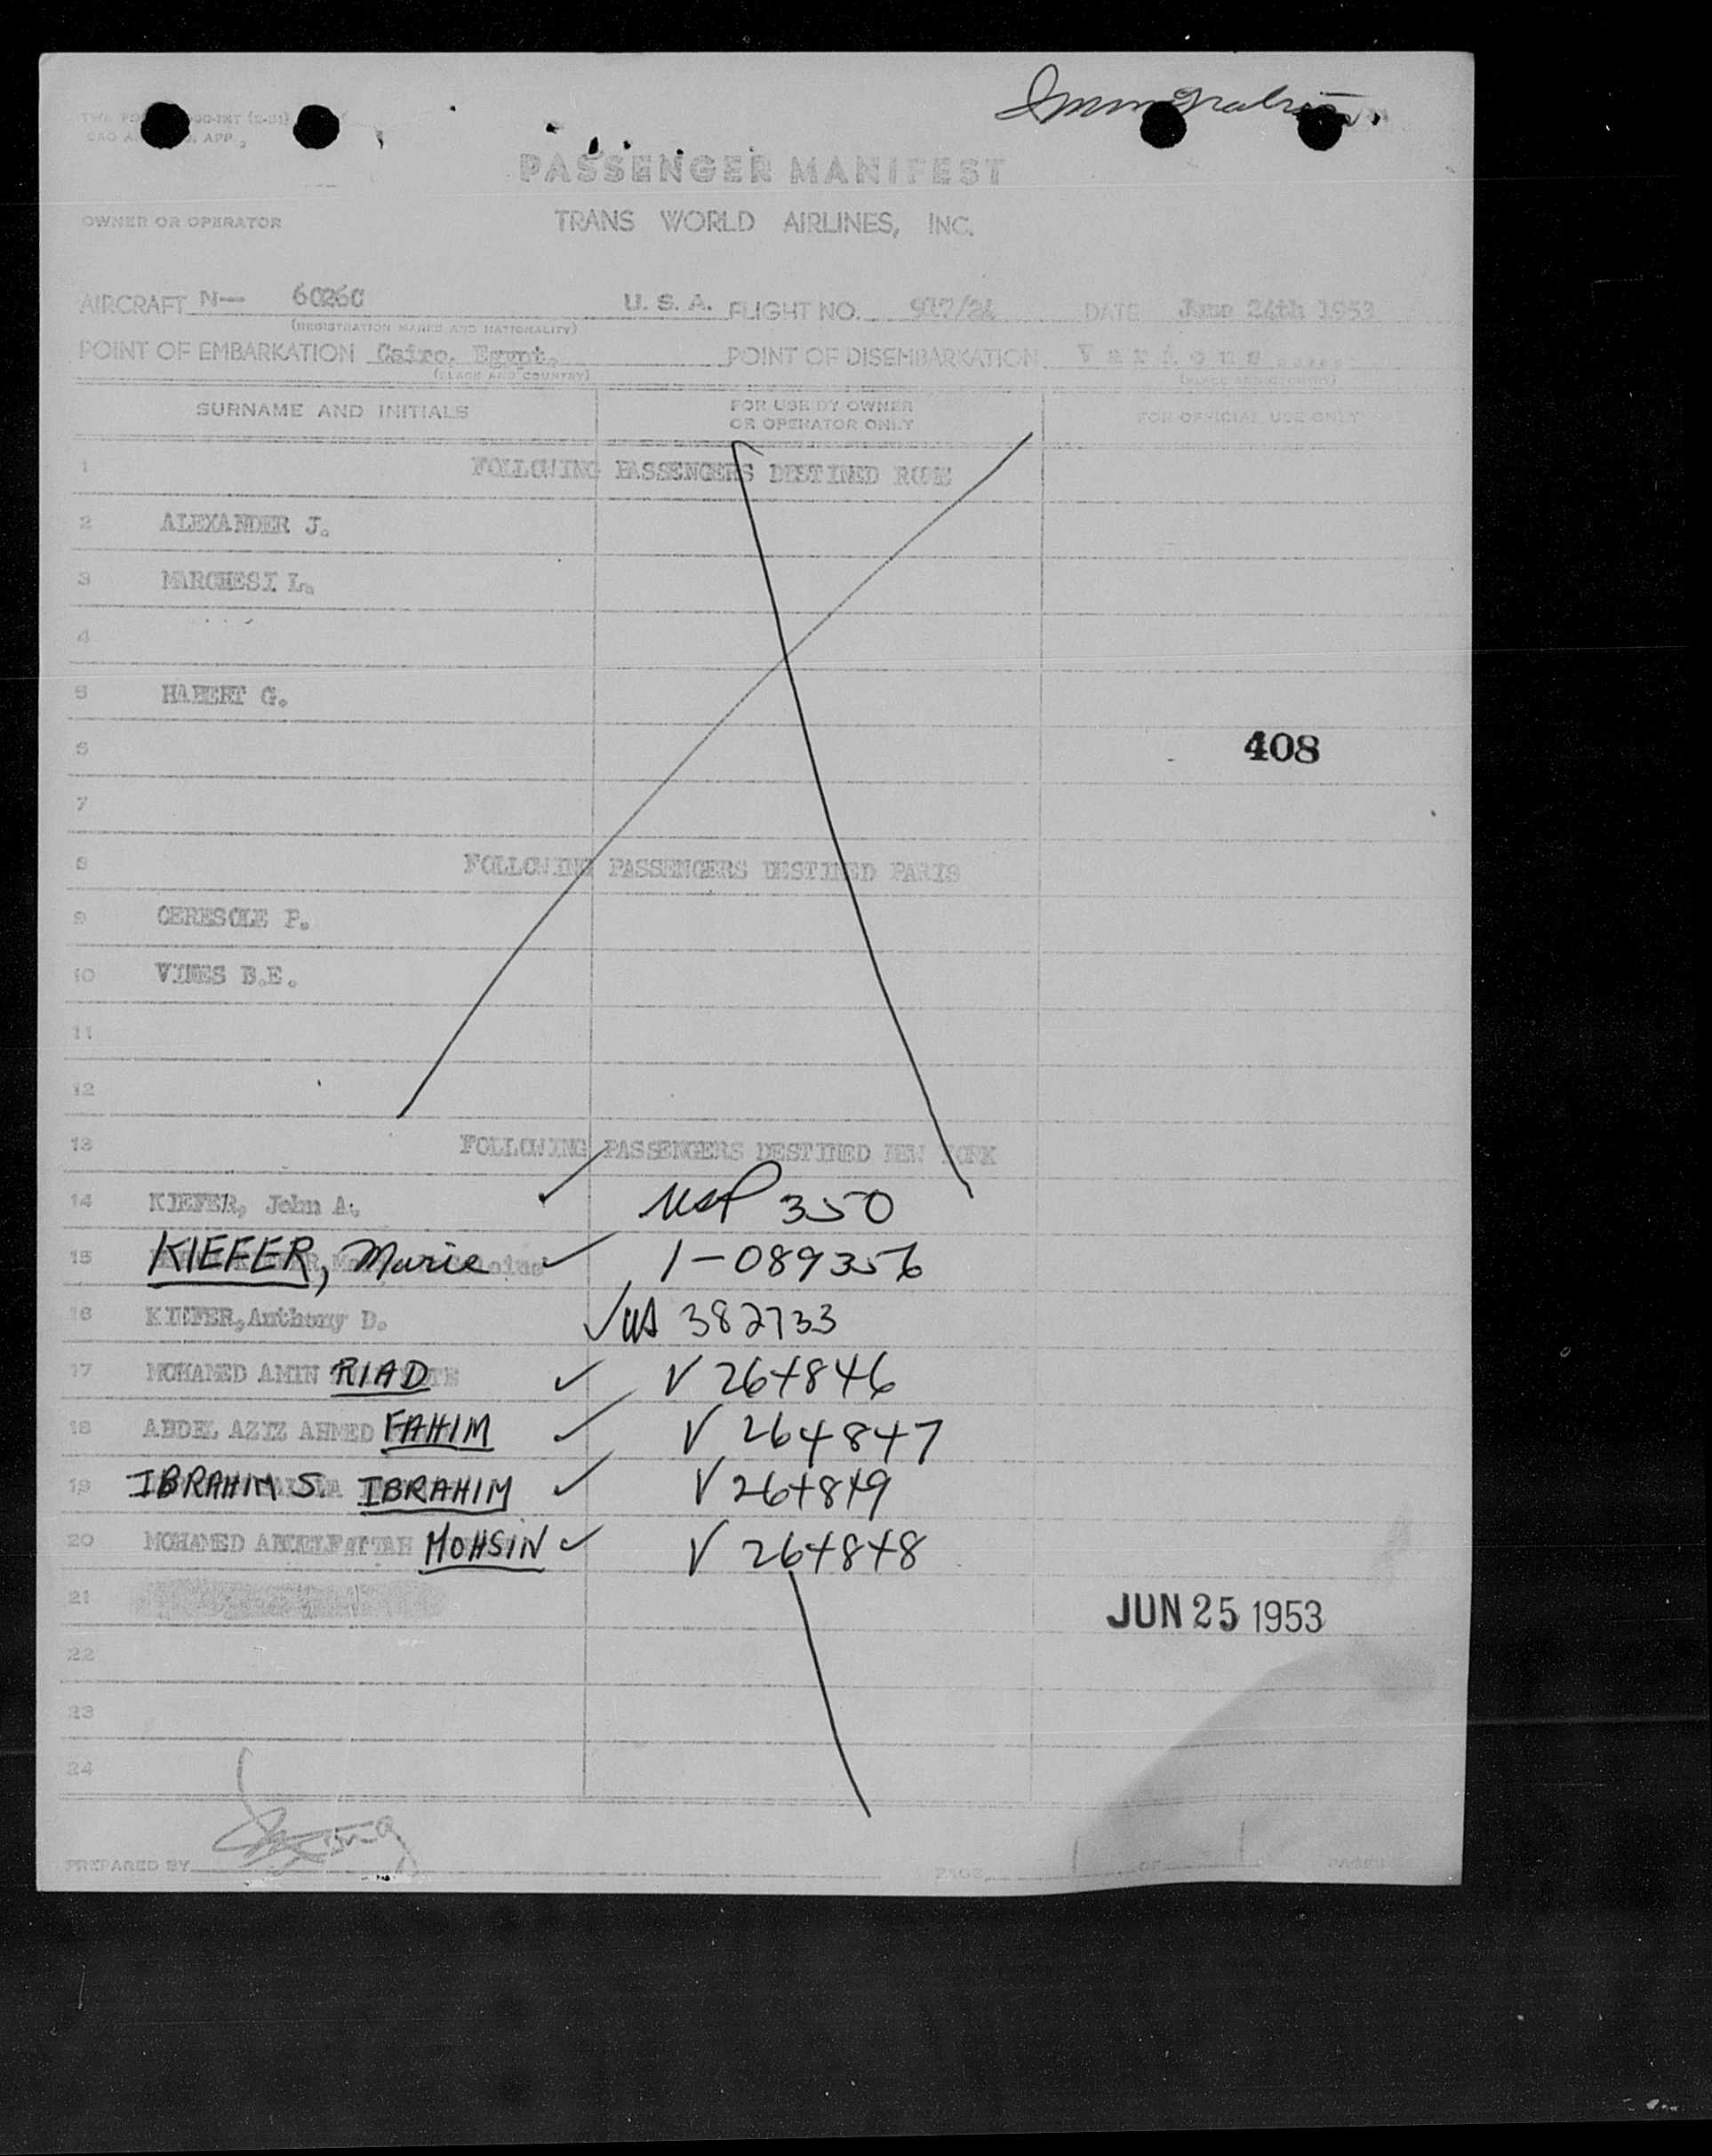 Immigration.
PASSENGER MANIFEST
OWNER OR OPERATOR TRANS WORLD AIRLINES, INC.
AIRCRAFT N— 6026C U. S. A. FLIGHT NO. 917/24 DATE June 24th 1953
(REGISTRATION MARKS AND NATIONALITY)
POINT OF EMBARKATION Cairo, Egypt. POINT OF DISEMBARKATION Various
(PLACE AND COUNTRY) (PLACE AND COUNTRY)
SURNAME AND INITIALS FOR USE BY OWNER OR OPERATOR ONLY FOR OFFICIAL USE ONLY
1 FOLLOWING PASSENGERS DESTINED ROME
2 ALEXANDER J.
3 MARCHESI L.
4
5 HABERT G.
6 408
7
8 FOLLOWING PASSENGERS DESTINED PARIS
9 CERESOLE P.
10 VIMES B.E.
11
12
13 FOLLOWING PASSENGERS DESTINED NEW YORK
14 KIEFER, John A. ✓ USP 350
15 KIEFER, Marie ✓ 1-089356
16 KIEFER, Anthony D. ✓ US 382733
17 MOHAMED AMIN RIAD ✓ V 264846
18 ABDEL AZIZ AHMED FAHIM ✓ V 264847
19 IBRAHIM S. IBRAHIM ✓ V 264849
20 MOHAMED ABDELFATTAH MOHSIN ✓ V 264848
21 JUN 25 1953
22
23
24
PREPARED BY PAGE 1 OF 1 PAGES